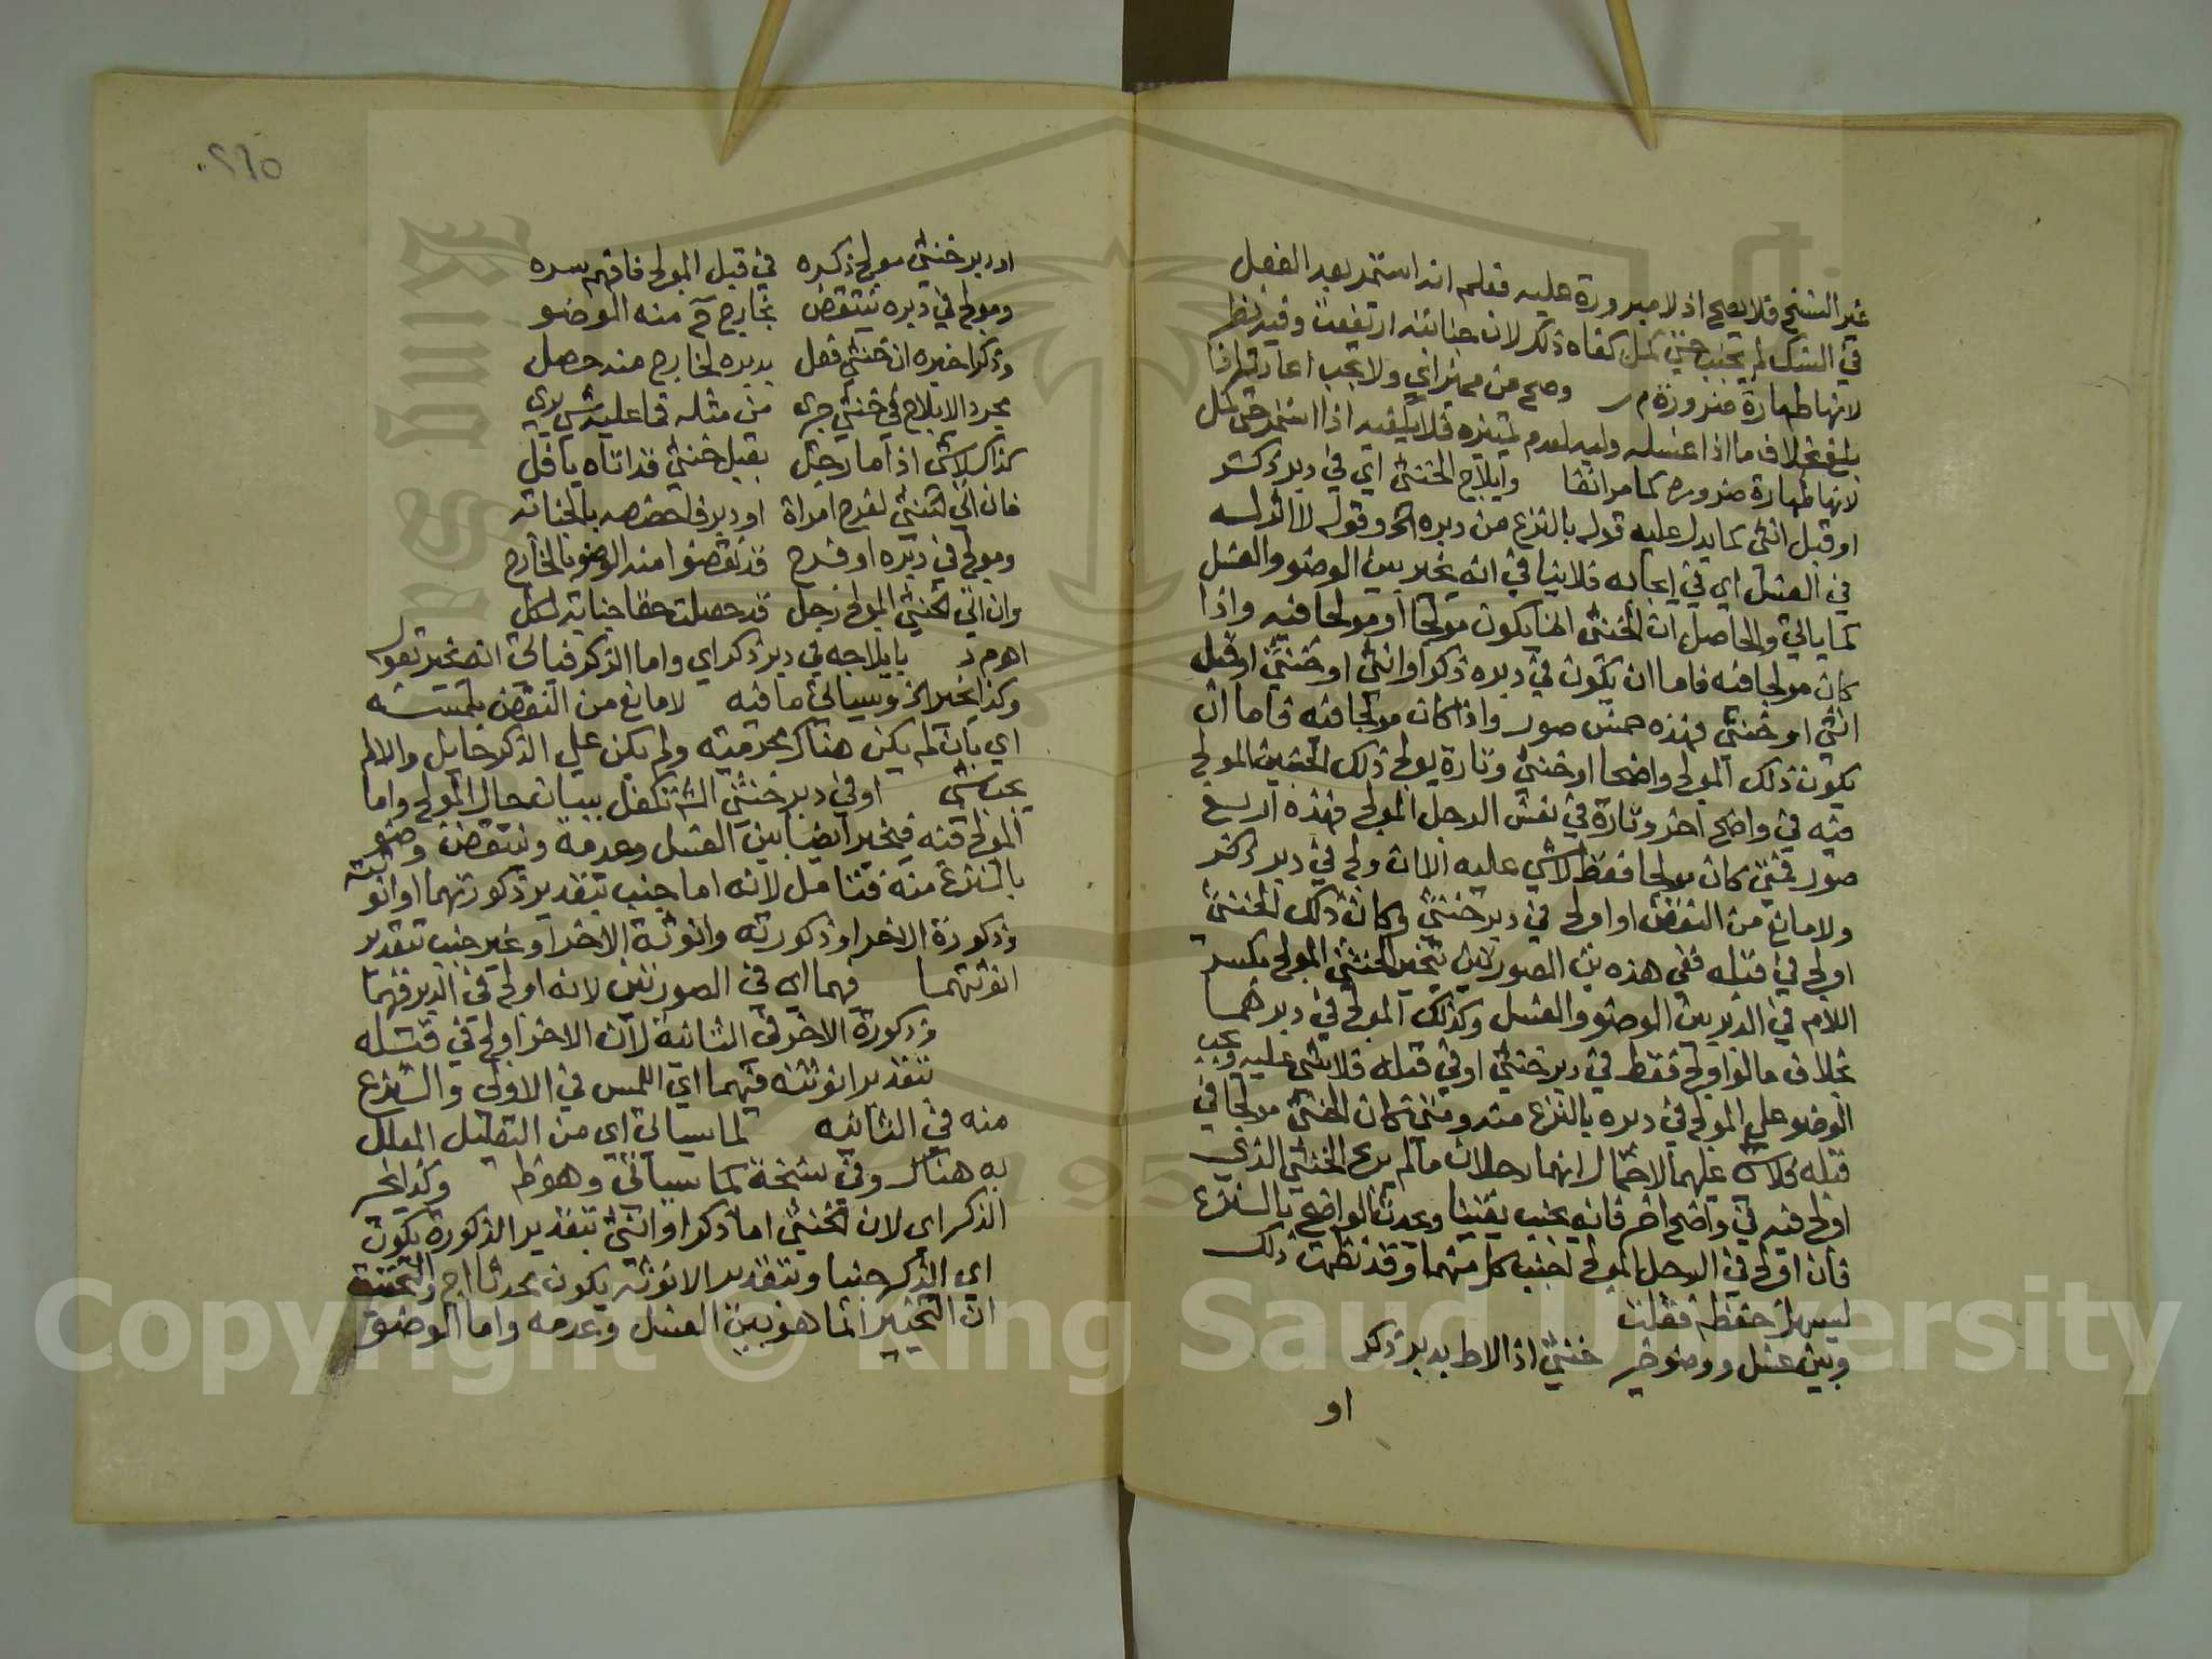 غير الشخ فلا يصح اذ لا ضرورة عليه فعلم انه استمر بعد الفعل
في الشك لم يجنب حتى كمل كفاه ذلك لان جنابته ارتفعت وفيه نظر
لانها طهارة ضرورة م ر وصح من مميز اي ولا يجب اعادته اذا
بلغ بخلاف ما اذا غسله وليه لعدم تمييزه فلا يكفيه اذا استمر حتى كمل
لانها طهارة ضرورة كما مر انفا وايلاج الخنثى اي في دبر ذكر
او قبل انثى كما يدل عليه قوله بالنزع من دبره الخ وقوله لا اثر له
في الغسل اي في ايجابه فلا ينافي انه يخير بين الوضو والغسل
كما ياتي والحاصل ان الخنثى اما يكون مولجا او مولجا فيه واذا
كان مولجا فيه فاما ان يكون في دبره ذكرا او انثى او خنثى او قبل
انثى او خنثى فهذه خمس صور واذا كان مولجا فيه فاما ان
يكون ذلك المولج واضحا او خنثى وتارة يولج ذلك الخنثى المولج
فيه في واضح اخر وتارة في نفس الرجل المولج فهذه اربع
صور فمتى كان مولجا فقط لا شي عليه الا ان ولج في دبر ذكر
ولا مانع من النقض او اولج في دبر خنثى وكان ذلك الخنثى
اولج في قبله ففي هذه ين الصورتين تخير الخنثى المولج بكسر
اللام في الدبرين الوضو والغسل وكذلك المولج في دبرهما
بخلاف ما لو اولج فقط في دبر خنثى او في قبله فلا شي عليه ويجب
الوضو على المولج في دبره بالنزع منه ومتى كان الخنثى مولجا في
قبله فلا شي عليهما لاحتمال انهما رجلان ما لم يولج الخنثى الذي
اولج فيه في واضح اخر فانه يجنب يقينا ويحدث الواضح بالنزع
فان اولج في الرجل المولج اجنب كل منهما وقد نظمت ذلك
ليسهل حفظه فقلت
وبين غسل ووضو خير خنثى اذا لاط بدبر ذكر
او
.٢٦٥
او دبر خنثى مولج ذكره في قبل المولج فافهم سره
ومولج في دبره ينتقض بخارج منه الوضو
وذكر اخيره ان خنثى فعل بدبره لخارج منه حصل
مجرد الايلاج في خنثى جرى من مثله فما عليه شي يرى
كذاك لا شي اذا ما رجل بقبل خنثى قد اتاه يا فل
فان اتى الخنثى لفرج امراة او دبر فاخصصه بالجنابة
ومولج في دبره او فرج قد نقضوا منه الوضو بالخارج
وان اتى الخنثى المولج رجل قد حصلت حقا جنابة لكل
اه م د بايلاجه في دبر ذكر اي واما الذكر فياتي انه يخير بقوله
وكذا يخير الخ وسياتي ما فيه لا مانع من النقض بلمسه
اي بان لم يكن هناك محرمية ولم يكن على الذكر حايل والا لم
يجب شي او في دبر خنثى الخ تكفل ببيان حال المولج واما
المولج فيه فيخير ايضا بين الغسل وعدمه وينتقض وضوه
بالنزع منه فتامل لانه اما جنب بتقدير ذكورتهما او انوثته
وذكورة الاخر او ذكورته وانوثة الاخر او غير جنب بتقدير
انوثتهما فهما اي في الصورتين لانه اولج في الدبر فيهما
وذكورة الاخر في الثانية لان الاخر اولج في قبله
بتقدير انوثته فيهما اي اللمس في الاولى والنزع
منه في الثانية لما سياتي اي من التعليل المعلل
به هناك وفي نسخة كما سياتي وهو ظ وكذا يخير
الذكر اي لان الخنثى اما ذكر او انثى بتقدير الذكورة يكون
اي الذكر جنبا وبتقدير الانوثة يكون محدثا اج والتحقيق
ان التخيير انما هو بين الغسل وعدمه واما الوضو